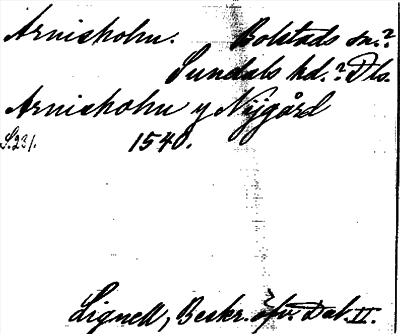 Arnisholm. Bolstads sn.?
Sundals hd.? Dls.
Arnisholm y Nÿgård
S.231. 1540.
Lignell, Beskr. öfver Dal. II.